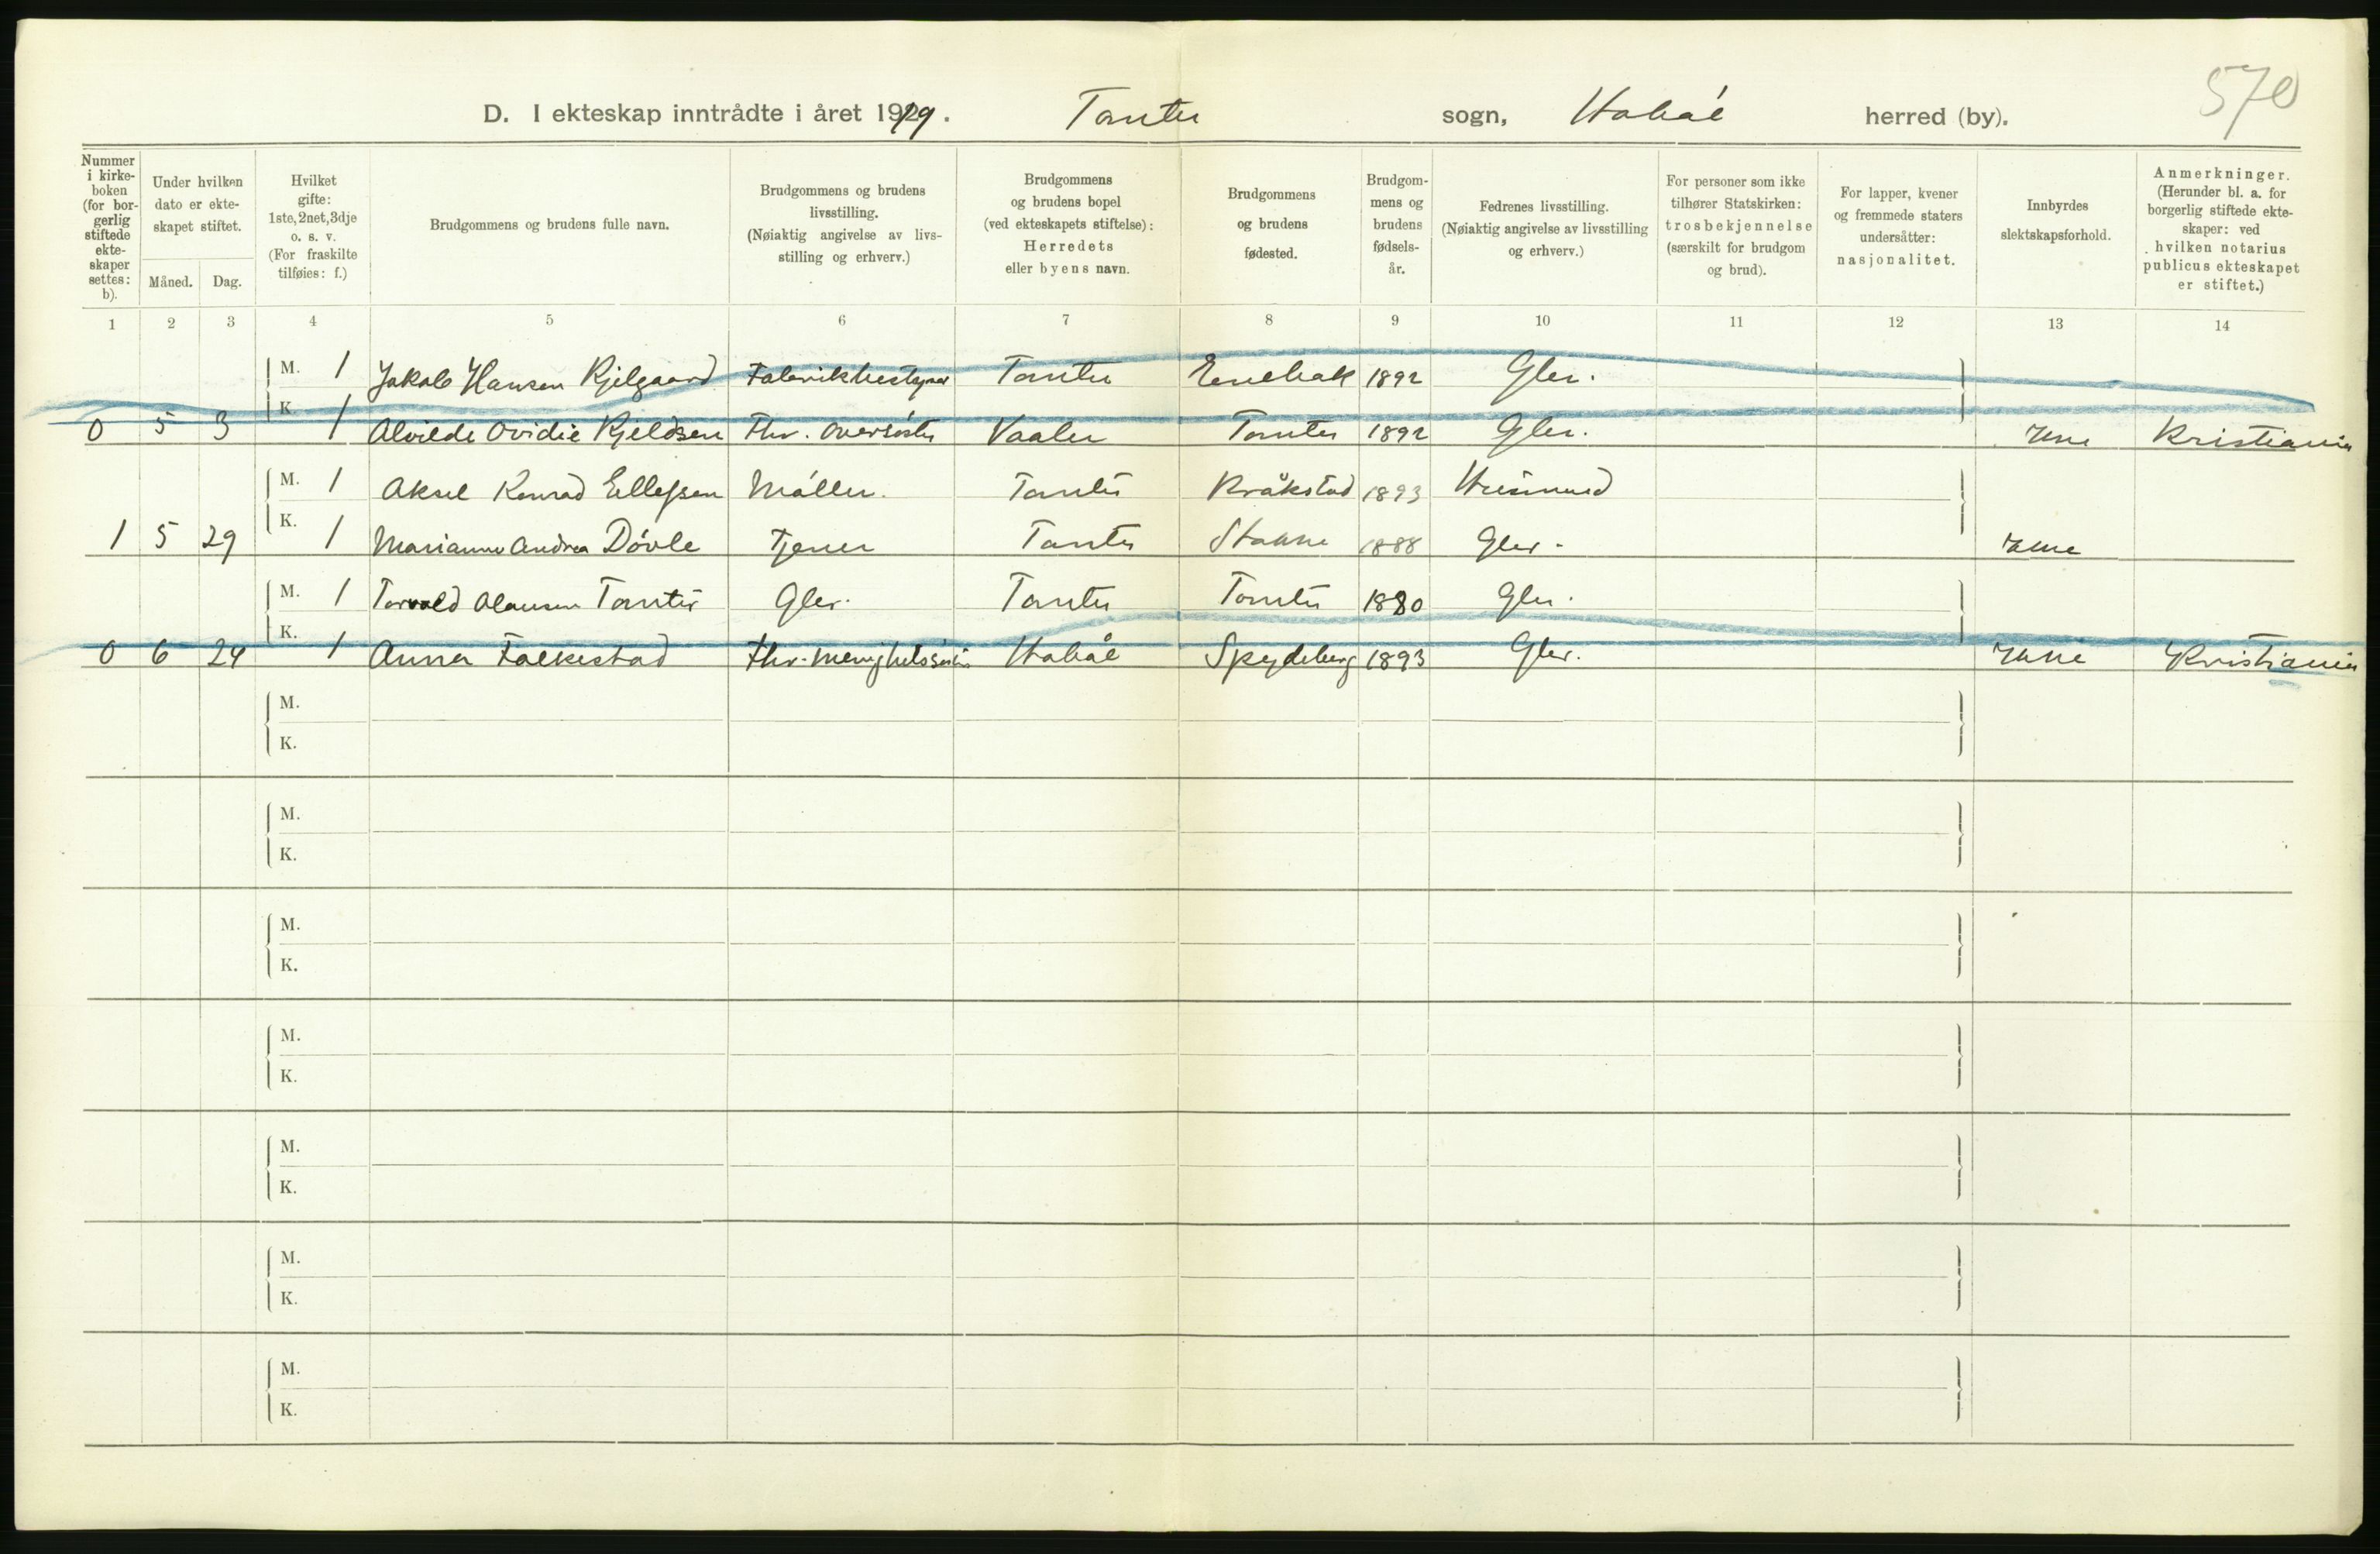 570
D. I ekteskap inntrådte i året 1919. Tomter sogn, Hobøl herred (by).
Nummer i kirkeboken (for borgerlig stiftede ekteskaper settes: b).
Under hvilken dato er ekteskapet stiftet.
Måned. Dag.
Hvilket gifte: 1ste, 2net, 3dje o. s. v. (For fraskilte tilføies: f.)
Brudgommens og brudens fulle navn.
Brudgommens og brudens livsstilling. (Nøiaktig angivelse av livsstilling og erhverv.)
Brudgommens og brudens bopel (ved ekteskapets stiftelse): Herredets eller byens navn.
Brudgommens og brudens fødested.
Brudgommens og brudens fødselsår.
Fedrenes livsstilling. (Nøiaktig angivelse av livsstilling og erhverv.)
For personer som ikke tilhører Statskirken: trosbekjennelse (særskilt for brudgom og brud).
For lapper, kvener og fremmede staters undersåtter: nasjonalitet.
Innbyrdes slektskapsforhold.
Anmerkninger. (Herunder bl. a. for borgerlig stiftede ekteskaper: ved hvilken notarius publicus ekteskapet er stiftet.)
1 2 3 4 5 6 7 8 9 10 11 12 13 14
M. 1 Jakob Hansen Kjelgaard Fabrikbestyrer Tomter Enebak 1892 Gbr.
0 5 3 K. 1 Alvilde Ovidie Kjeldsen Fhv. oversøster Vaaler Tomter 1892 Gbr. Kristiania
M. 1 Aksel Konrad Ellefsen Møller. Tomter Kråkstad 1893 Husmand
1 5 29 K. 1 Marianne Andrea Døvle Tjener Tomter 1888 Gbr.
M. 1 Torvald Olausen Tomter Gbr. Tomter Tomter 1880 Gbr.
0 6 24 K. 1 Anna Falkestad Fhv. Hobøl Spydeberg 1893 Gbr. Kristiania
M.
K.
M.
K.
M.
K.
M.
K.
M.
K.
M.
K.
M.
K.